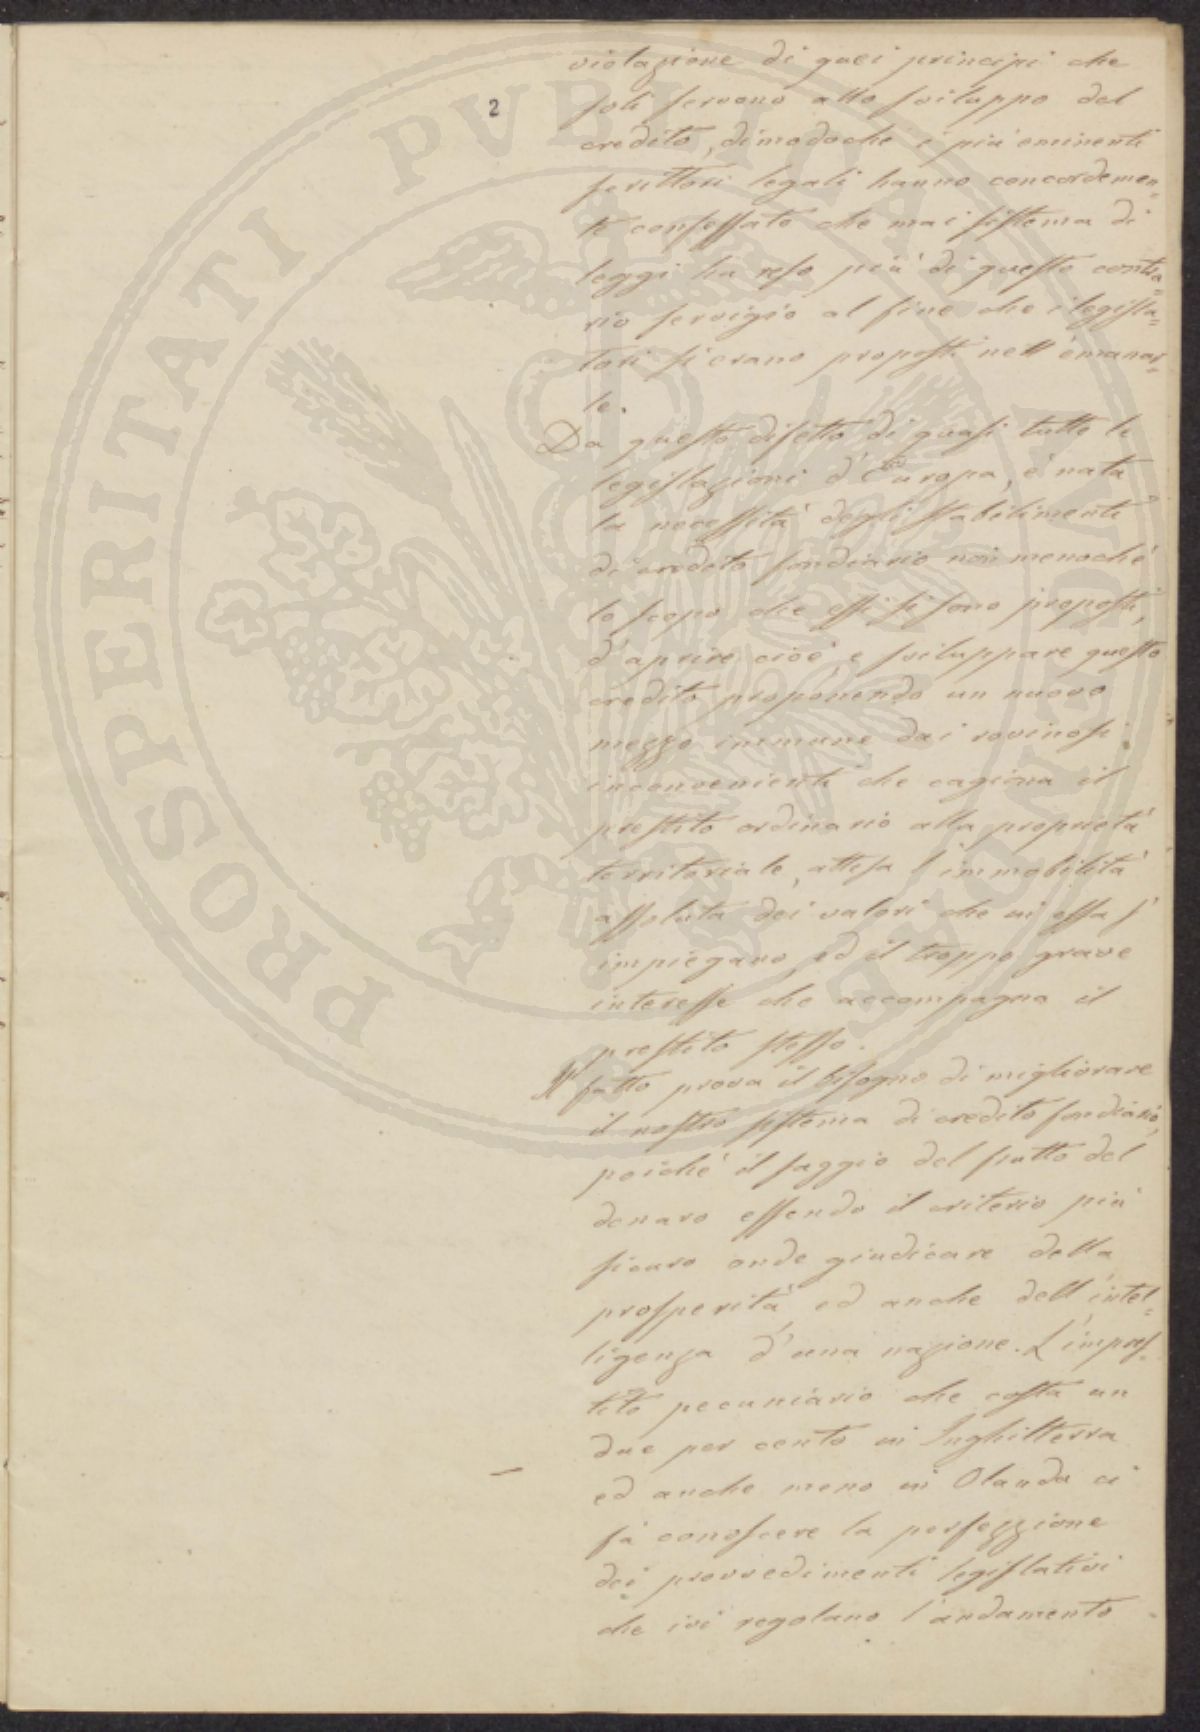 2
violazione di quei principi che
soli servono allo sviluppo del
credito, dimodoche i più eminenti
scrittori legali hanno concordemen=
te confessato che mai sistema di
leggi ha reso più di questo contra=
rio servigio al fine che i legisla=
tori si erano proposti nell'emanar=
le.
Da questo difetto di quasi tutte le
legislazioni d'Europa, é nata
la necessità degli stabilimenti
di credito fondiario non menoché
lo scopo che essi si sono proposti,
d'aprire cioé e sviluppare questo
credito proponendo un nuovo
mezzo immune dai rovinosi
inconvenienti che cagiona il
prestito ordinario alla proprietà
territoriale, attesa l'immobilità
assoluta dei valori che in essa s'
impiegano, ed il troppo grave
interesse che accompagna il
prestito stesso.
Il fatto prova il bisogno di migliorare
il nostro sistema di credito fondiario,
poiché il saggio del frutto del
denaro essendo il criterio più
sicuro onde giudicare della
prosperità, ed anche dell'intel=
ligenza d'una nazione. L'impres=
tito pecuniario che costa un
due per cento in Inghilterra
ed anche meno in Olanda ci
fà conoscere la perfezzione
dei provvedimenti legislativi
che ivi regolano l'andamento
PROSPERITATI PVBLICAE AVGENDAE